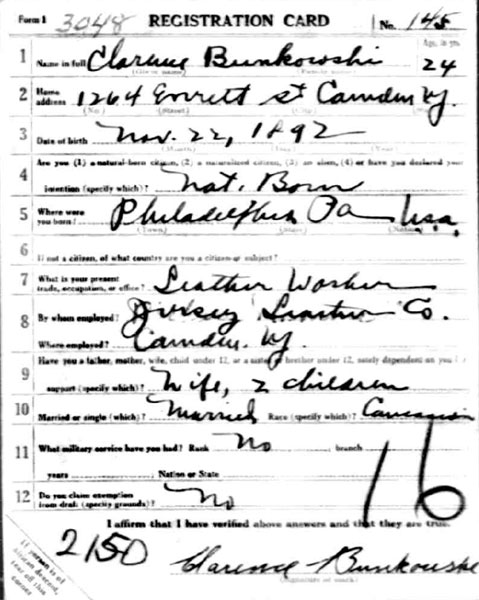 Form 1 3048 REGISTRATION CARD No. 145
1 Name in full Clarence Bunkowski Age, in yrs. 24
(Given name) (Family name)
2 Home address 1264 Everett St Camden NJ.
(No.) (Street) (City) (State)
3 Date of birth Nov. 22, 1892
(Month) (Day) (Year)
4 Are you (1) a natural-born citizen, (2) a naturalized citizen, (3) an alien, (4) or have you declared your
intention (specify which)? Nat. Born
5 Where were you born? Philadelphia Pa U.S.A.
(Town) (State) (Nation)
6 If not a citizen, of what country are you a citizen or subject?
7 What is your present trade, occupation, or office? Leather Worker
8 By whom employed? Jersey Leather Co.
Where employed? Camden NJ.
9 Have you a father, mother, wife, child under 12, or a sister or brother under 12, solely dependent on you for
support (specify which)? Wife, 2 children
10 Married or single (which)? Married Race (specify which)? Caucasian
11 What military service have you had? Rank No branch
years Nation or State
12 Do you claim exemption from draft (specify grounds)? No
I affirm that I have verified above answers and that they are true.
16
2150
Clarence Bunkowski
(Signature or mark)
If person is of
African descent,
tear off this
corner